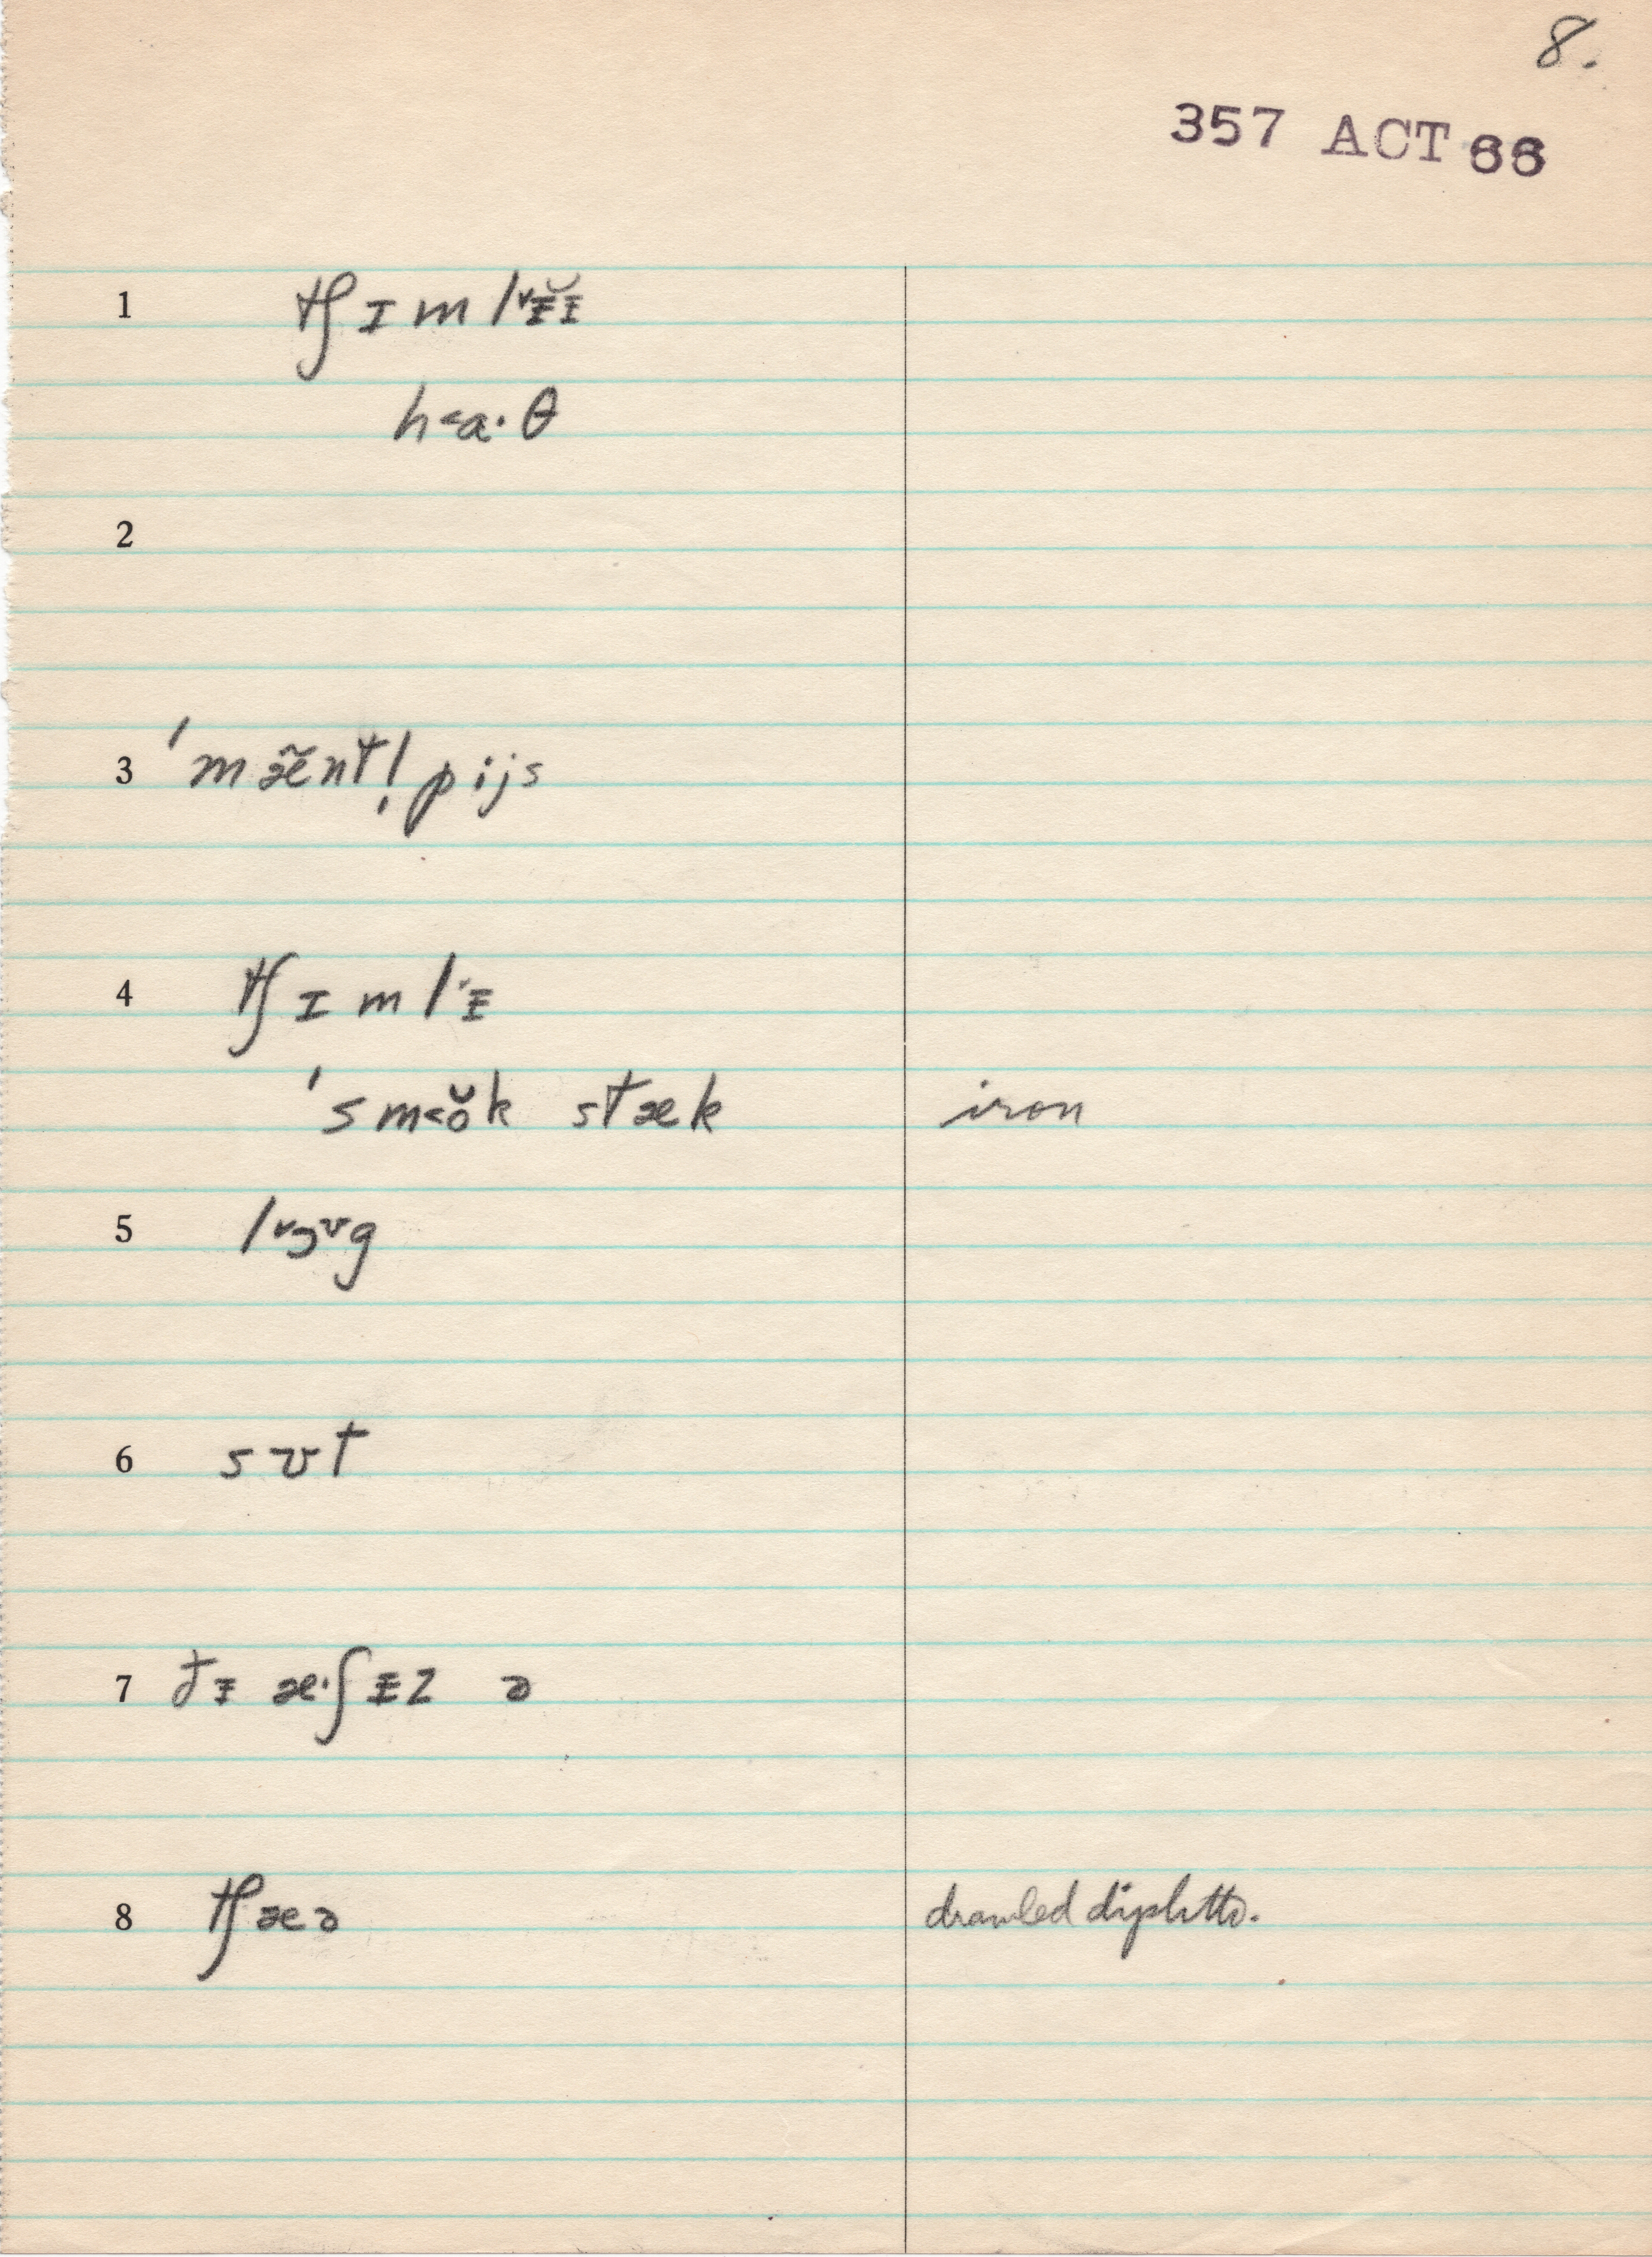 8.
357 ACT 66
1 tʃɪml˅ᵻ̆ᵻ
h˂a·θ
2
3 ˈmæ̃ntl̩pijs
4 tʃɪml˅ᵻ
ˈsm˂ŏk stæk iron
5 l˅ɔʊg
6 sʊt
7 ðᵻ æ·ʃᵻz ə
8 tʃæə drawled diphth.